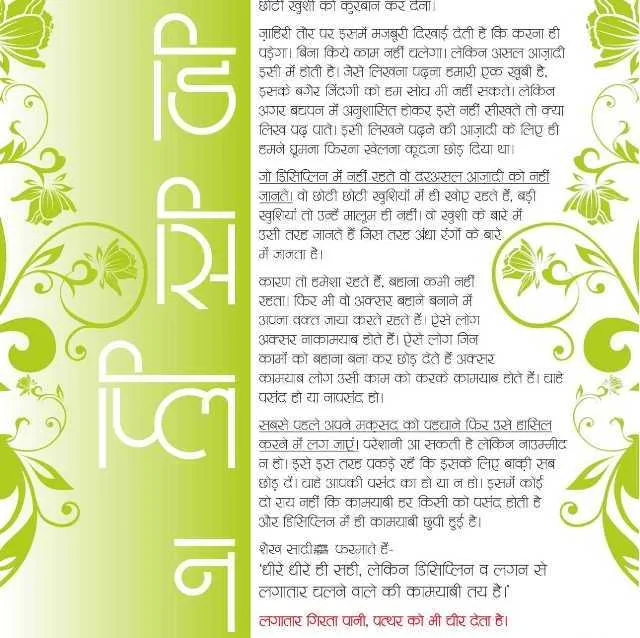 छोटी खुशी को कुरबान कर देना।
ज़ाहिरी तौर पर इसमें मजबूरी दिखाई देती है कि करना ही
पड़ेगा। बिना किये काम नहीं चलेगा। लेकिन असल आज़ादी
इसी में होती है। जैसे लिखना पढ़ना हमारी एक खुबी है,
इसके बगैर जिंदगी को हम सोच भी नहीं सकते। लेकिन
अगर बचपन में अनुशासित होकर इसे नहीं सीखते तो क्या
लिख पढ़ पाते। इसी लिखने पढ़ने की आज़ादी के लिए ही
हमने घूमना फिरना खेलना कूदना छोड़ दिया था।
जो डिसिप्लिन में नहीं रहते वो दरअसल आज़ादी को नहीं
जानते। वो छोटी छोटी खुशियों में ही खोए रहते हैं, बड़ी
खुशियां तो उन्हें मालूम ही नहीं। वो खुशी के बारे में
उसी तरह जानते हैं जिस तरह अंधा रंगों के बारे
में जानता है।
कारण तो हमेशा रहते हैं, बहाना कभी नहीं
रहता। फिर भी वो अक्सर बहाने बनाने में
अपना वक्त जाया करते रहते हैं। ऐसे लोग
अक्सर नाकामयाब होते हैं। ऐसे लोग जिन
कामों को बहाना बना कर छोड़ देते हैं अक्सर
कामयाब लोग उसी काम को करके कामयाब होते हैं। चाहे
पसंद हो या नापसंद हो।
सबसे पहले अपने मक़सद को पहचाने फिर उसे हासिल
करने में लग जाएं। परेशानी आ सकती है लेकिन नाउम्मीद
न हो। इसे इस तरह पकड़े रहें कि इसके लिए बाक़ी सब
छोड़ दें। चाहे आपकी पसंद का हो या न हो। इसमें कोई
दो राय नहीं कि कामयाबी हर किसी को पसंद होती है
और डिसिप्लिन में ही कामयाबी छुपी हुई है।
शेख सादी फरमाते हैं-
'धीरे धीरे ही सही, लेकिन डिसिप्लिन व लगन से
लगातार चलने वाले की कामयाबी तय है।'
लगातार गिरता पानी, पत्थर को भी चीर देता है।